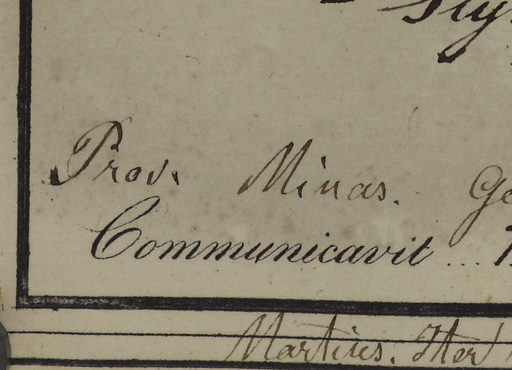 Prov. Minas. Ge
Communicavit
Martius. Iter